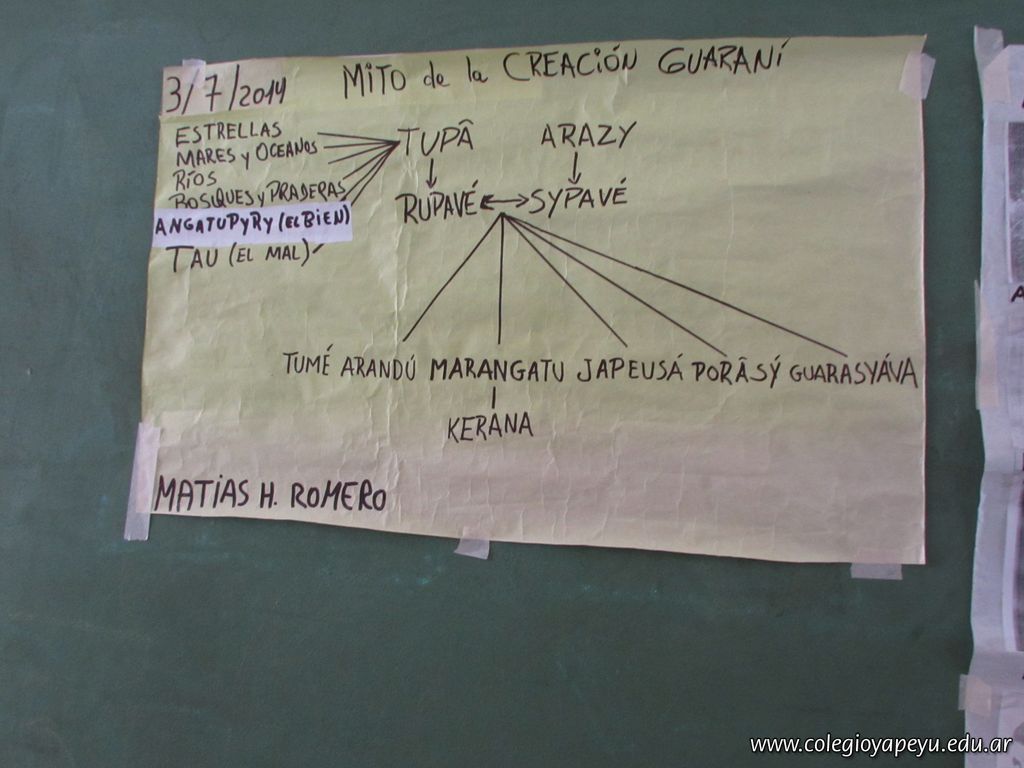 3/7/2014 MITO de la CREACIÓN GUARANÍ
ESTRELLAS
MARES y OCEANOS
RÍOS
BOSQUES y PRADERAS
ANGATUPYRY (EL BIEN)
TAU (EL MAL)
TUPÂ ARAZY
RUPAVÉ SYPAVÉ
TUMÉ ARANDÚ MARANGATU JAPEUSÁ PORÂSÝ GUARASYÁVA
KERANA
MATIAS H. ROMERO
www.colegioyapeyu.edu.ar